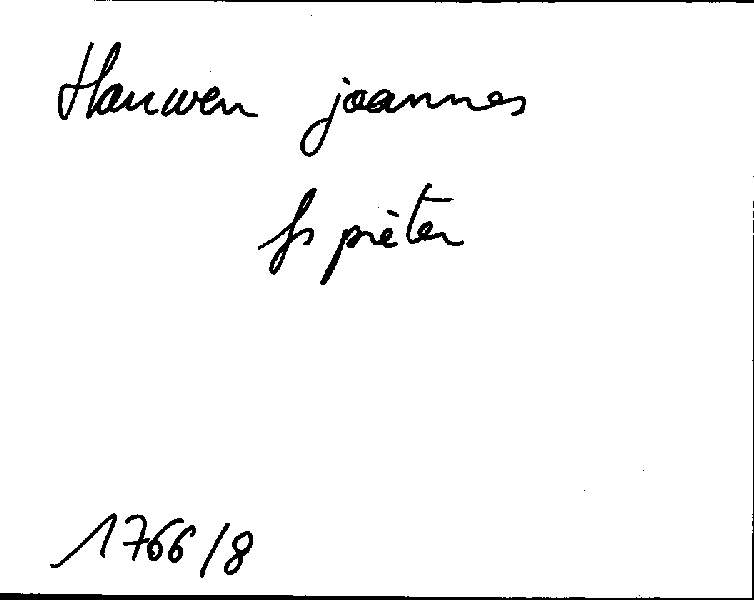 Hauwen joannes
fs pieter
1766/8